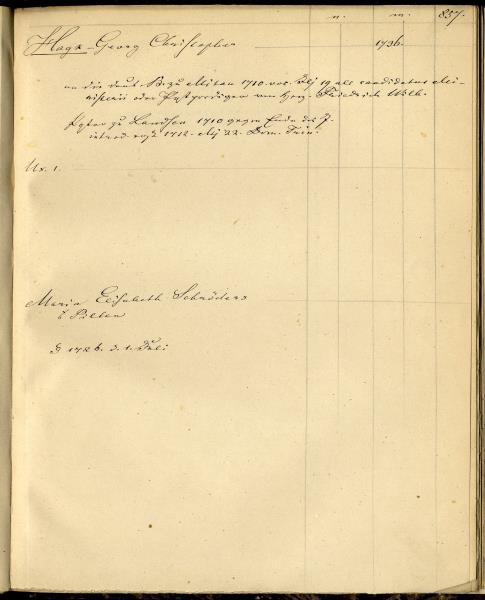 n. m. 857.
Haga Georg Christopher 1736.
an die deut. K. zu Mitau 1710 vor Mj 19 als candidatus Mi-
nisterii oder Pestprediger von Herz. Friedrich Wilh.
Pastor zu Landsen 1710 gegen Ende des J.
introd. erst 1712. Mj 22. Dom. Trin.
Ux. 1.
Maria Elisabeth Schröders
Pilten
1726. d. 1. Juli